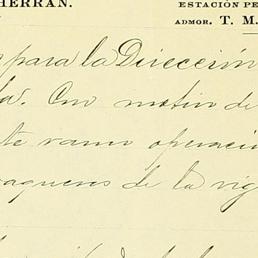 HERRAN.
ESTACIÓN PE
ADMOR. T. M.
para la Dirección
Con motivo de
te ramo operacio
aqueros de la vig